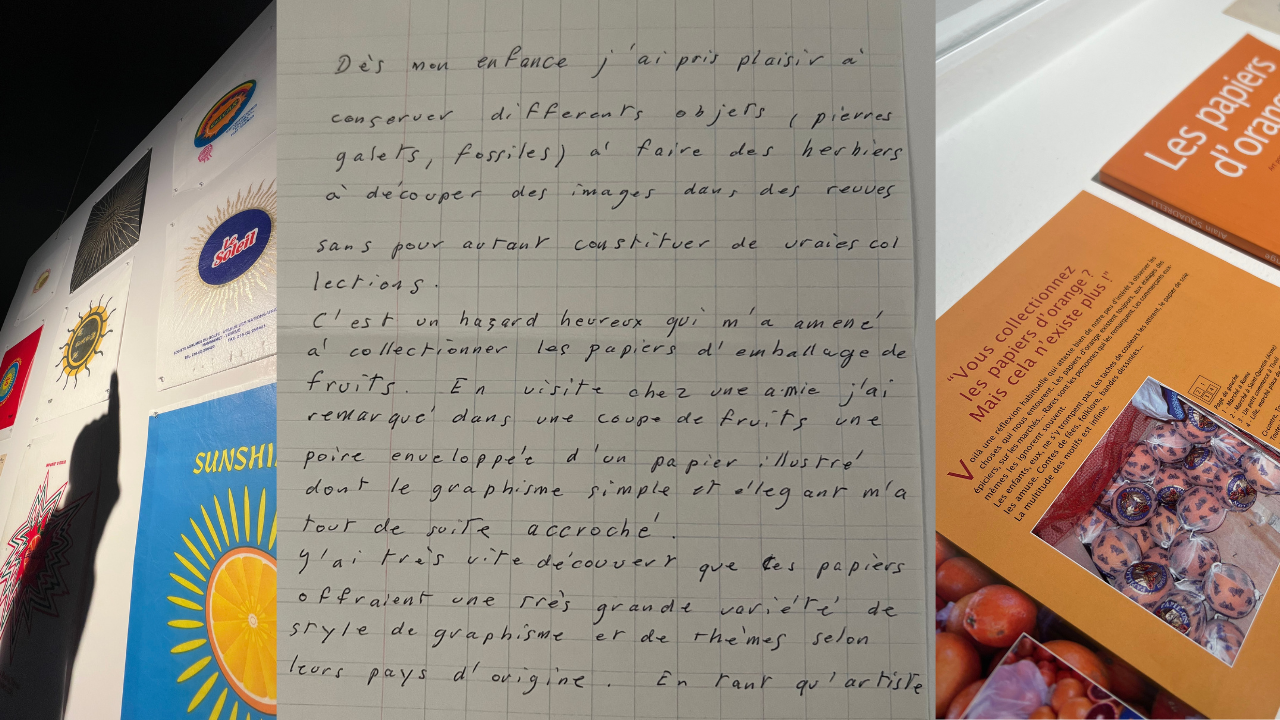 Le
Soleil
SUNSHI
Dès mon enfance j'ai pris plaisir à
conserver differents objets ( pierres
galets, fossiles) à faire des herbiers
à découper des images dans des revues
sans pour autant constituer de vraies col
lections.
C'est un hazard heureux qui m'a amené
à collectionner les papiers d'emballage de
fruits. En visite chez une amie j'ai
remarqué dans une coupe de fruits une
poire enveloppée d'un papier illustré
dont le graphisme simple et élegant m'a
tout de suite accroché.
Y'ai très vite découvert que ces papiers
offraient une très grande variété de
style de graphisme et de thèmes selon
leurs pays d'origine. En tant qu'artiste
Les papiers
d'oran
Alain SQUADRELLI
"Vous collectionnez
les papiers d'orange ?
Mais cela n'existe plus !"
Voilà une réflexion habituelle qui atteste bien de notre peu d'intérêt à observer les
choses qui nous entourent. Les papiers d'orange existent toujours, aux étalages des
épiciers, sur les marchés... Rares sont les personnes qui les remarquent. Les commerçants eux-
mêmes les ignorent souvent.
Les enfants, eux, ne s'y trompent pas. Les taches de couleurs les attirent, le papier de soie
les amuse. Contes de fées, folklore, bandes dessinées...
La multitude des motifs est infinie.